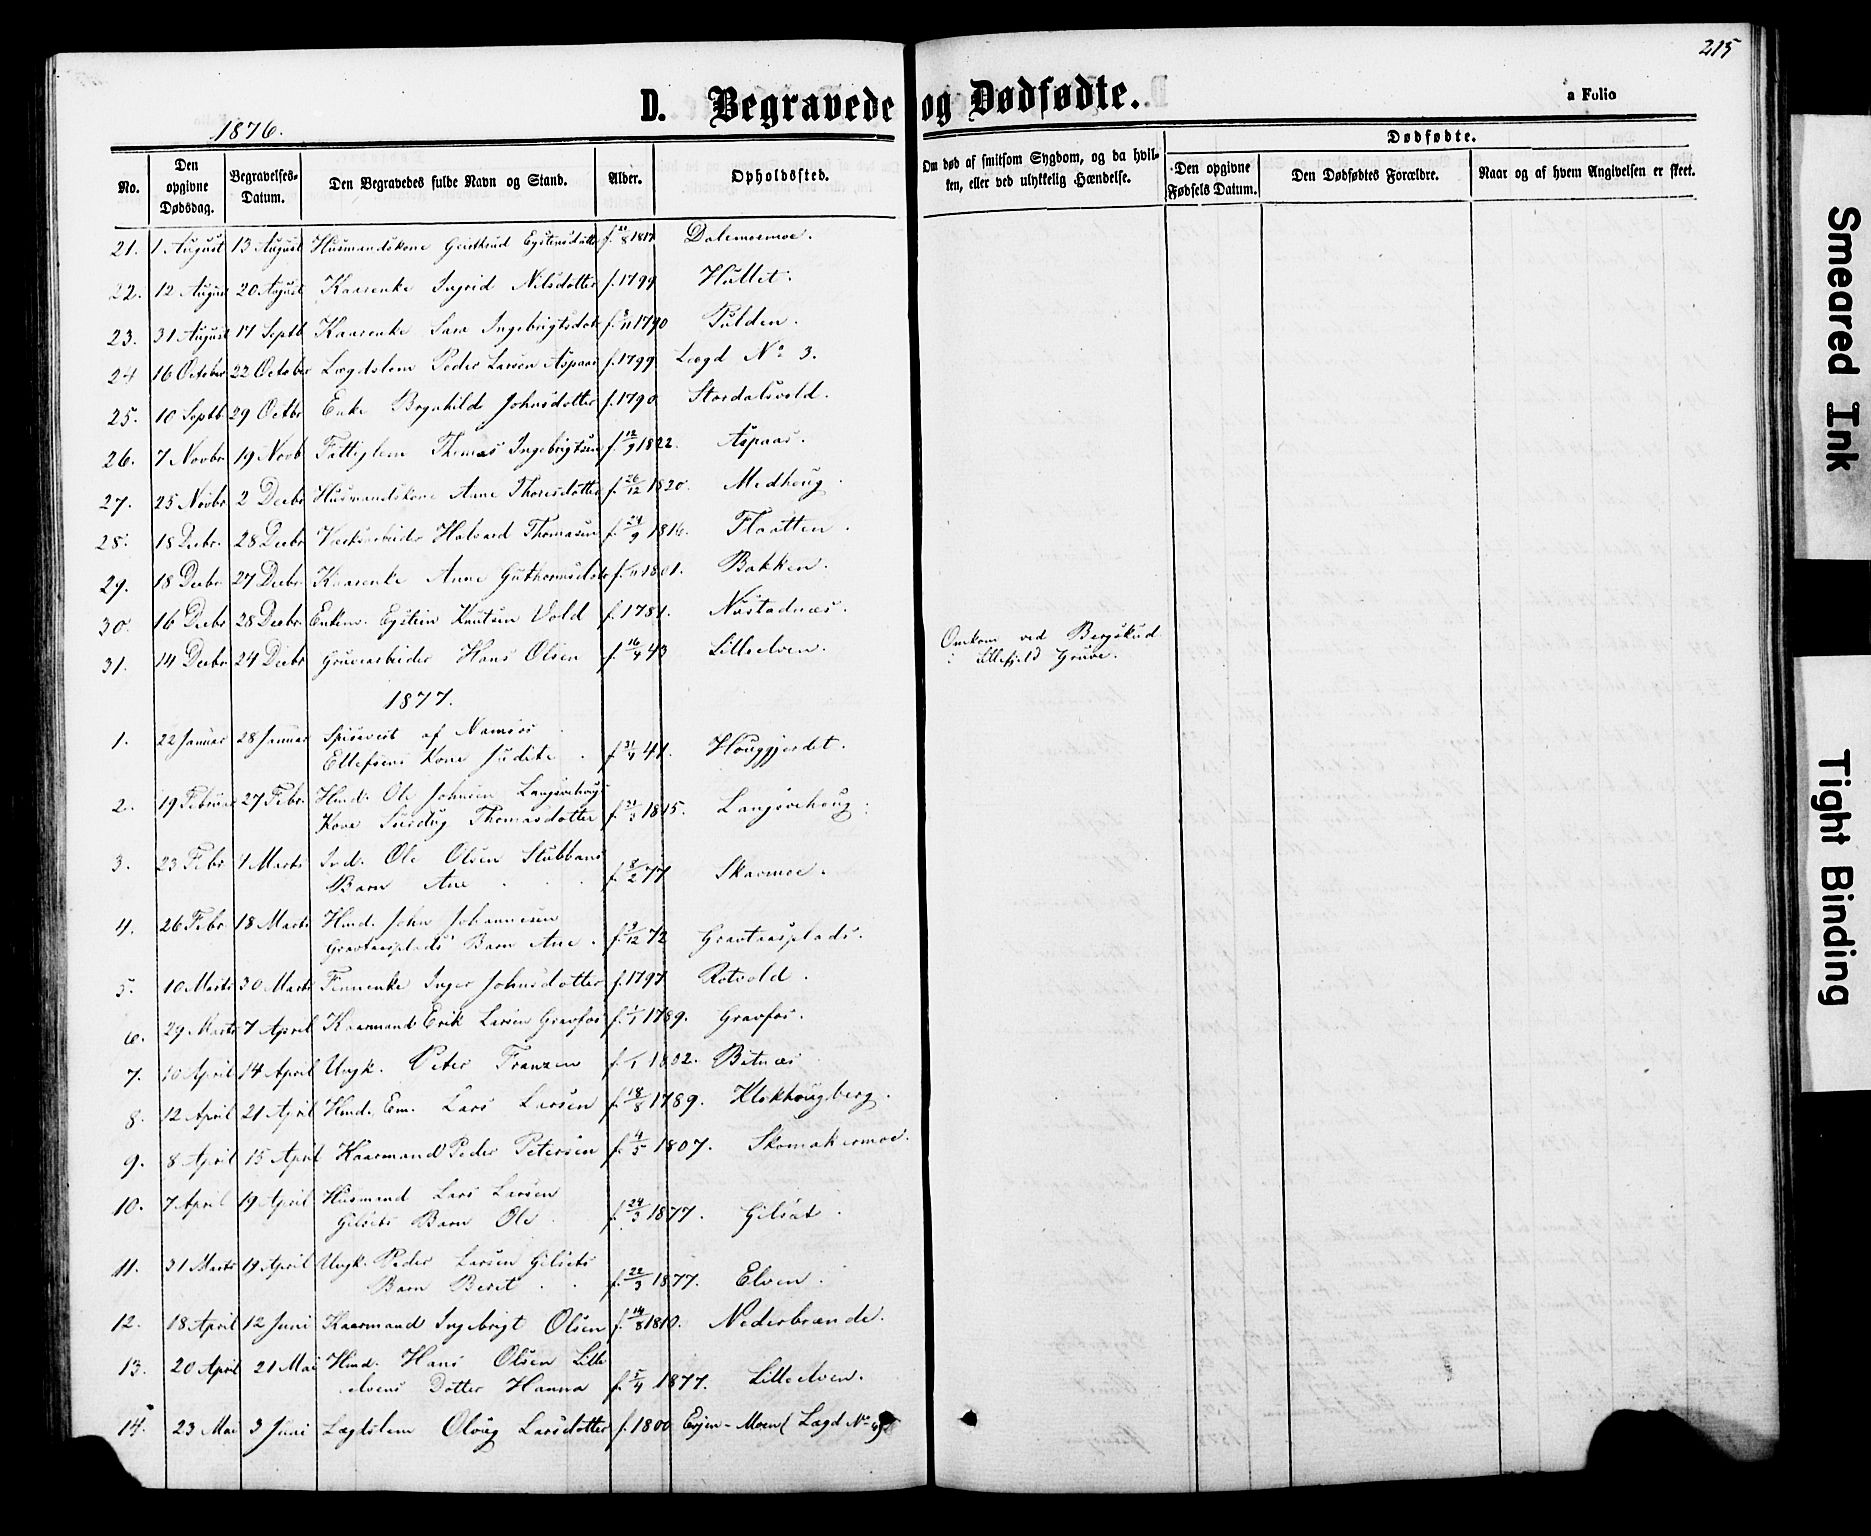 215
D. Begravede og Dødfødte.
a Folio
1876.
No.
Den opgivne Dødsdag.
Begravelses-Datum.
Den Begravedes fulde Navn og Stand.
Alder.
Opholdssted.
Om død af smitsom Sygdom, og da hvilken, eller ved ulykkelig Hændelse.
Dødfødte.
Den opgivne Fødsels Datum.
Den Dødfødtes Forældre.
Naar og af hvem Angivelsen er skeet.
21. 1 August 13 August Husmandskone Gjertrud Eystensdatte f. 8 1817 Dalemosmoe.
22. 12 August 20 August Kaarenke Ingrid Nilsdotter f. 1799 Hullet.
23. 31 August 17 Septb Kaarenke Sara Ingebrigtsdot f. 11 1790 Pulden.
24 16 October 22 October Lægdslem Peder Larsen Aspaas f. 1799 Lægd No 3.
25. 10 Septb 29 Octbr Enke Brynhild Johnsdotter f. 1790. Stordalsvold.
26. 7 Novbr 19 Novb Fattiglem Thomas Ingebrigtsen f. 12/9 1822. Aspaas.
27. 25 Novbr 2 Decbr Husmandskone Anne Thoresdotter f. 26/12 1820. Medhoug.
28. 18 Decbr. 28 Decbr Værksarbeider Halvard Thomasen f. 24/9 1816. Flaatten.
29. 18 Decbr 27 Decbr Kaarenke Anne Guthormsdot f. 11 1801. Bakken.
30. 16 Decbr 28 Decbr. Enkem. Eystein Knutsen Vold f. 1781. Nustadnæs.
31. 14 Decbr 24 Decbr Gruvearbeider Hans Olsen f. 16/4 43 Lilleelven. Omkom ved Bergskud
i Lillefjeld Gruve.
1877.
1. 22 Januar 28 Januar af Namsos
Ellefsens Kone Judite f. 31/4 41. Houggjerdet.
2. 19 Februar 27 Febr. Hmd. Ole Johnsen Langsvehoug
Kone Surdug Thomasdotter f. 21/3 1815. Langsvehoug.
3. 23 Febr 4 Marts Ind. Ole Olsen Stubbans
Barn Ane f. 8/2 77 Skarmoe.
4. 26 Febr 18 Marts Hmd. John Johannesen
Gravtaasplads Barn Ane. f. 9/12 72 Gravtaasplads.
5. 10 Marts 30 Marts Finnenke Inger Johnsdotter f. 1797 Rotvold.
6. 29 Marts 7 April Kaarmand Erik Larsen Gravfos f. 1/1 1789. Gravfos.
7. 10 April 14 April Ungk. Peter Franzen f. /1 1802. Bitnæs
8. 12 April 21 April Hmd. Em. Lars Larsen f. 18/8 1789. Klokhougberg.
9. 8 April 15 April Kaarmand Peder Petersen f. 4/5 1807. Skomakermoe.
10. 7 April 19 April Husmand Lars Larsen
Gilsets Barn Ole f. 24/3 1877. Gilsat.
11. 31 Marts 19 April Ungk. Peder Larsen Gilsets
Barn Berit f. 22/3 1877. Elven.
12. 18 April 12 Juni Kaarmand Ingebrigt Olsen f. 14/8 1810. Nederbrænde.
13. 20 April 21 Mai Hmd. Hans Olsen Lille
elvens Dotter Hanna f. 5/4 1877. Lilleelven.
14. 23 Mai 3 Juni Lægdslem Oloug Larsdotter f. 1800 Evjen-Moen (Lægd No
Smeared Ink
Tight Binding